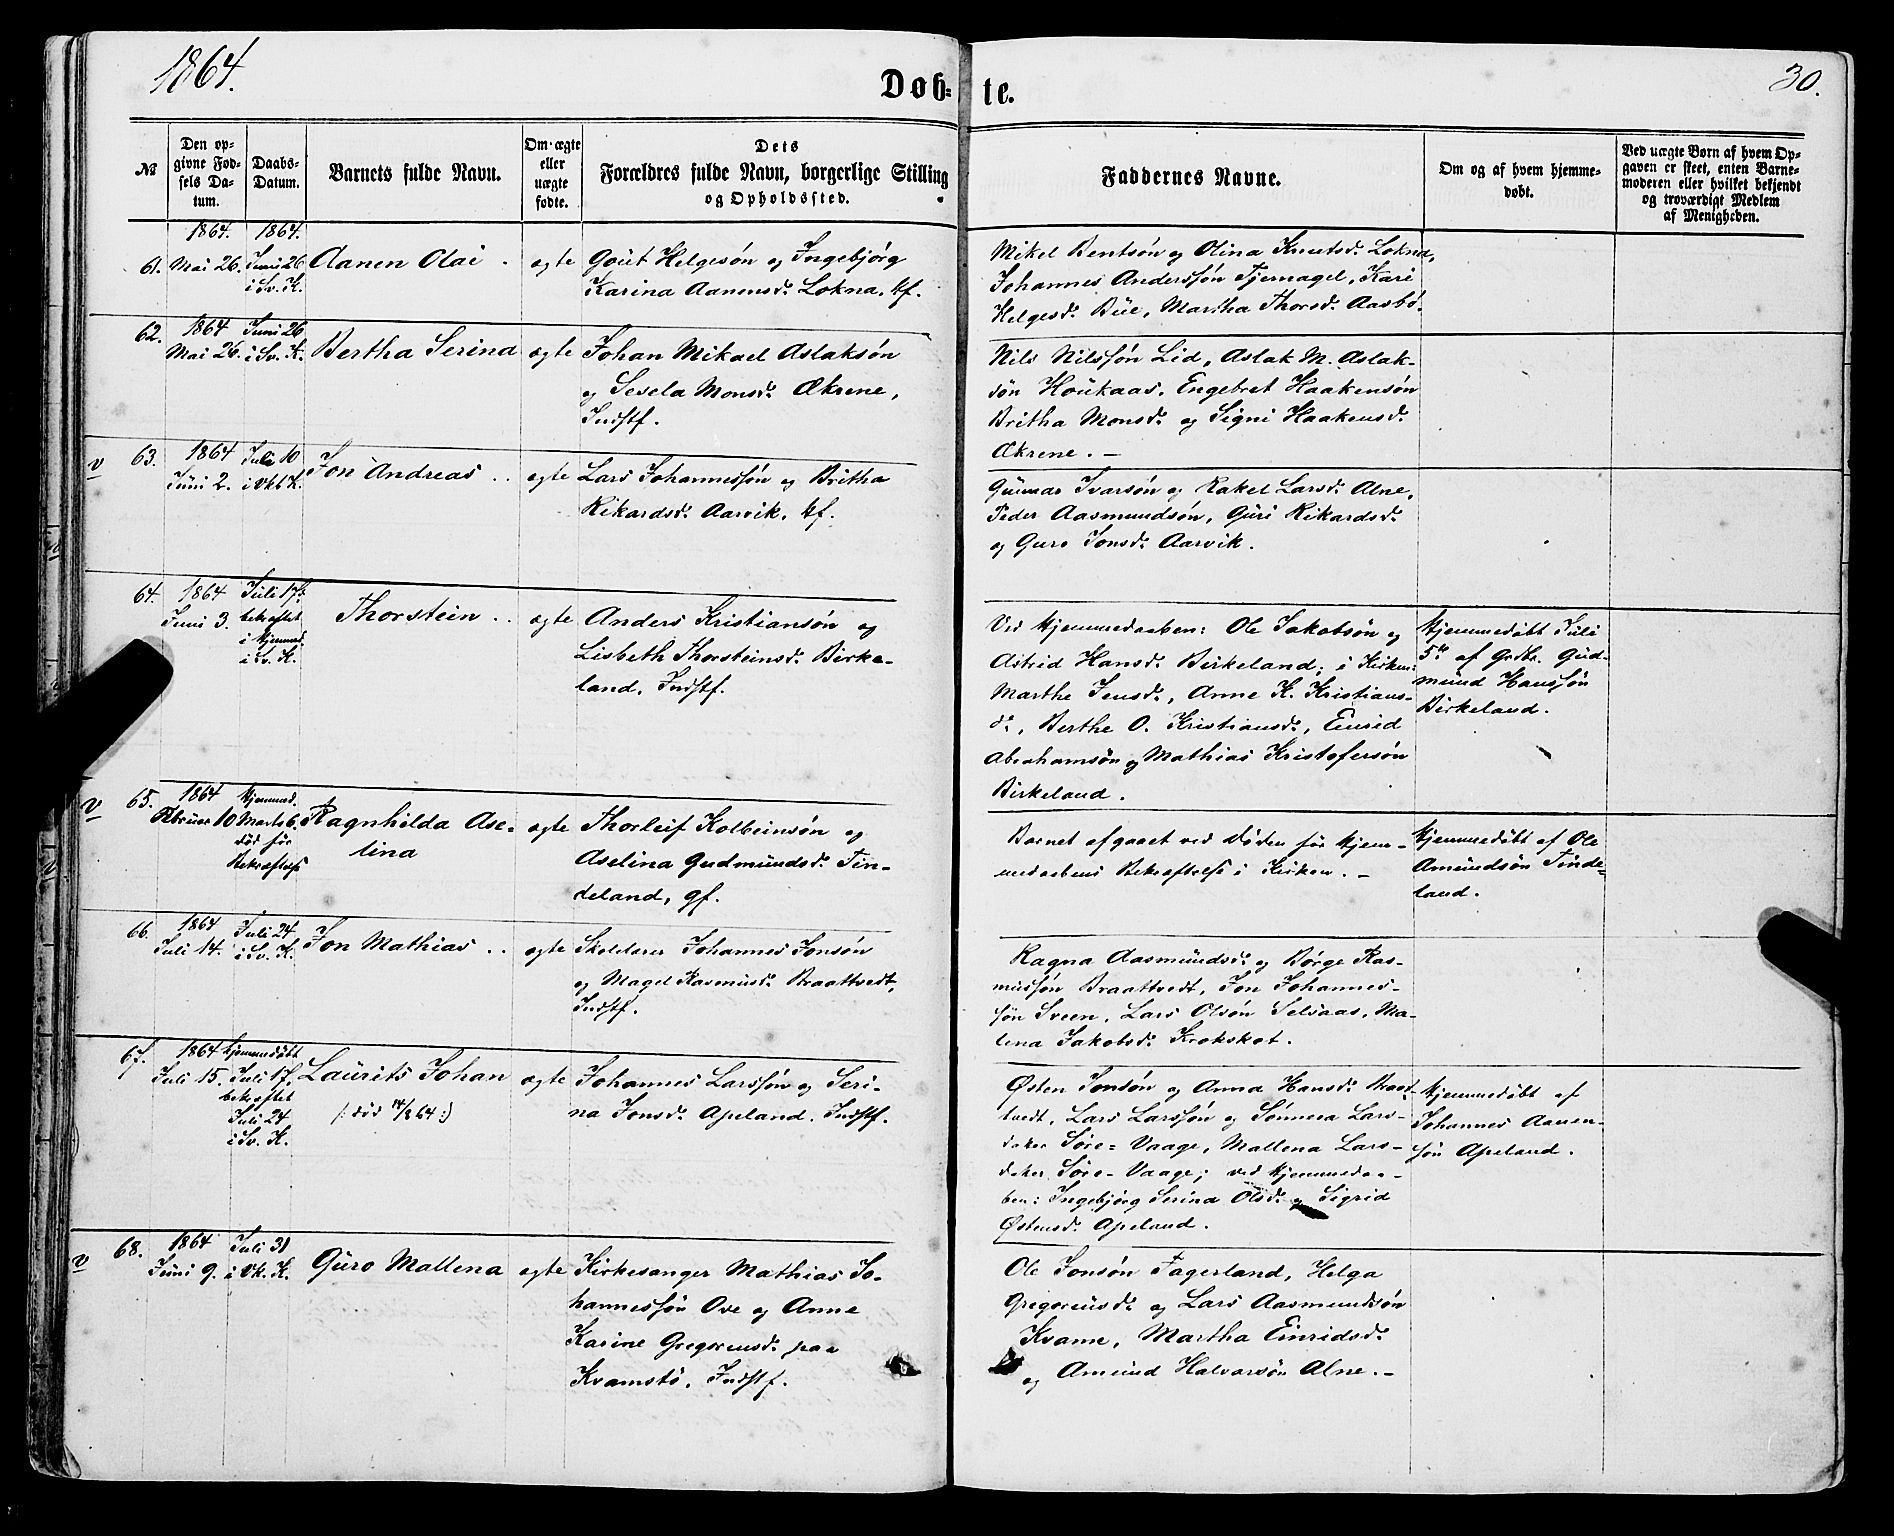 1864.
Døb-
te.
30.
№
Den op-
givne Fød-
sels Da-
tum.
Daabs-
Datum.
Barnets fulde Navn.
Om ægte
eller
uægte
fødte.
Dets
Forældres fulde Navn, borgerlige Stilling
og Opholdssted.
Faddernes Navne.
Om og af hvem hjemme-
døbt.
Ved uægte Børn af hvem Op-
gaven er skeet, enten Barne-
moderen eller hvilket bekjendt
og troværdigt Medlem
af Menigheden.
1864. 1864.
61. Mai 26. Juni 26 i Sv. K. Aanen Olai . ægte
Goüt Helgesøn og Ingebjørg
Karina Aanensd. Lokna, kf.
Mikel Bentsøn og Olina Knutsd. Lokna,
Johannes Anderssøn Tjernagel, Kari
Helgesd. Büe, Martha Thorsd. Aasbø.
62. 1864 Mai 26. Juni 26 i Sv. K. Bertha Serina ægte
Johan Mikael Aslaksøn
og Sesela Monsd. Økrene,
Indstf.
Nils Nilssøn Lid, Aslak M. Aslak-
søn Houkaas, Engebret Haakensøn
Britha Monsd. og Signi Haakensd.
Økrene. –
v 63. 1864 Jüni 2. Juli 10 i Vkl K. Jon Andreas . . ægte
Lars Johannessøn og Britha
Rikardsd. Aarvik, kf.
Günnar Ivarsøn og Rakel Larsd. Alne,
Peder Aasmundsøn, Guri Rikardsd.
og Guro Jonsd. Aarvik.
64. 1864 Juni 3. Juli 17de
bekræftet
i Hjemmed.
i Sv. K.
Thorstein . . ægte
Anders Kristiansøn og
Lisbeth Thorsteinsd. Birke-
land, Indstf.
Ved Hjemmedaaben: Ole Jakobsøn og
Astrid Hansd. Birkeland; i Kirken:
Marthe Jensd., Anne K. Kristians-
d., Berthe O. Kristiansd., Einrid
Abrahamsøn og Mathias Kristofersøn
Birkeland.
Hjemmedøbt Juli
5te af Grdbr. Gud-
mund Hanssøn
Birkeland.
v 65. 1864 Februar 10
Hjemmed.
Marts 6.
død før
Bekræftelse
Ragnhilda Ase-
lina
ægte
Thorleif Kolbeinsøn og
Aselina Gudmündsd. Tin-
deland, gf.
Barnet afgaaet ved Døden før Hjem-
medaabens Bekræftelse i Kirken. –
Hjemmedøbt af Ole
Amündsøn Tinde-
land.
66. 1864 Juli 14. Juli 24 i Sv. K. Jon Mathias . . ægte
Skolelærer Johannes Jonsøn
og Magel Rasmusd. Braattvedt,
Indstf.
Ragna Aasmündsd. og Børge Ras-
mussøn Braattvedt, Jon Johannes-
søn Sveen, Lars Olsøn Selsaas, Ma-
lena Jakobsd. Krokskot.
67. 1864 Juli 15.
Hjemmedøbt
Juli 17,
bekræftet
Juli 24
i Sv. K.
Laurits Johan
(: død 14/8 64 :)
ægte
Johannes Larssøn og Seri-
na Jonsd. Apeland. Indstf.
Østen Jonsøn og Anna Hansd. Braat-
tvedt, Lars Larssøn og Sønneva Lars-
datter Søre-Vaage, Mallena Lars-
datter Søre-Vaage; ved Hjemmedaa-
ben: Ingebjørg Serina Olsd. og Sigrid
Østensd. Apeland.
Hjemmedøbt af
Johannes Aanen-
søn Apeland.
v 68. 1864 Jüni 9. Juli 31 i Vk. K. Guro Mallena ægte
Kirkesanger Mathias Jo-
hannessøn Ove og Anne
Karine Gregoriusd. paa
Kvamstø, Indstf.
Ole Jonsøn Fagerland, Helga
Gregoriusd. og Lars Aasmundsøn
Kvame, Martha Einridsd.
og Amund Halvorsøn Alne. –